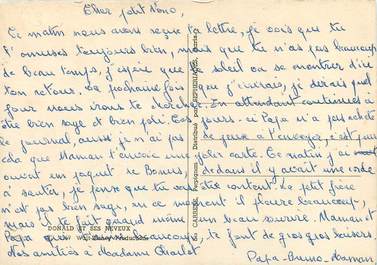 Cher petit Nono,
Ce matin nous avons reçu ta lettre, je vois que tu
t'amuses toujours bien, mais que tu n'as pas beaucoup
de beau temps, j'espère que le soleil va se montrer d'ici
ton retour. La prochaine fois que j'écrirais, je dirais quel
jour nous irons te chercher. En attendant continues à
être bien sage et bien poli. Ces jours-ci Papa n'a pas acheté
le journal, aussi je n'ai pas de jeux à t'envoyer, c'est pour
cela que Maman t'envoie une jolie carte. Ce matin j'ai
ouvert un paquet de Bonux, dedans il y avait une corde
à sauter, je pense que tu vas être content. Le petit frère
n'est pas bien sage, en ce moment il pleure beaucoup,
mais il te fait quand même un beau sourire. Maman et
Papa qui t'aiment beaucoup, te font de gros gros baisers.
Mes amitiés à Madame
Papa - Bruno - Maman
DONALD ET SES NEVEUX